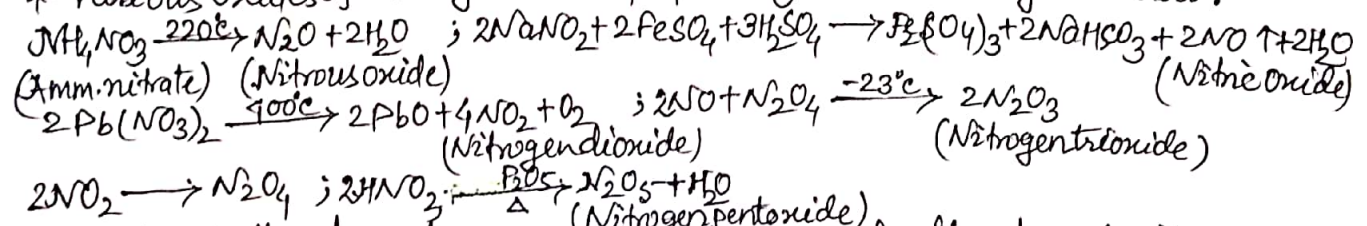 NH4NO3 —220°C→ N2O + 2H2O ; 2NaNO2 + 2FeSO4 + 3H2SO4 → Fe2(SO4)3 + 2NaHSO3 + 2NO ↑ + 2H2O
(Amm. nitrate) (Nitrous oxide) (Nitric oxide)
2Pb(NO3)2 —400°C→ 2PbO + 4NO2 + O2 ; 2NO + N2O4 —-23°C→ 2N2O3
(Nitrogen dioxide) (Nitrogen trioxide)
2NO2 → N2O4 ; 2HNO3 —P2O5 Δ→ N2O5 + H2O
(Nitrogen pentoxide)